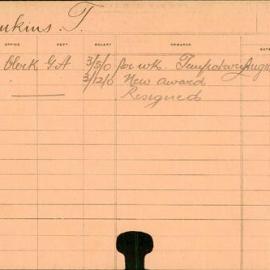 nkins, T.
OFFICE DEPT SALARY REMARKS
Clerk G.A 3/5/0 per wk. Temporary
3/12/0 New award
Resigned